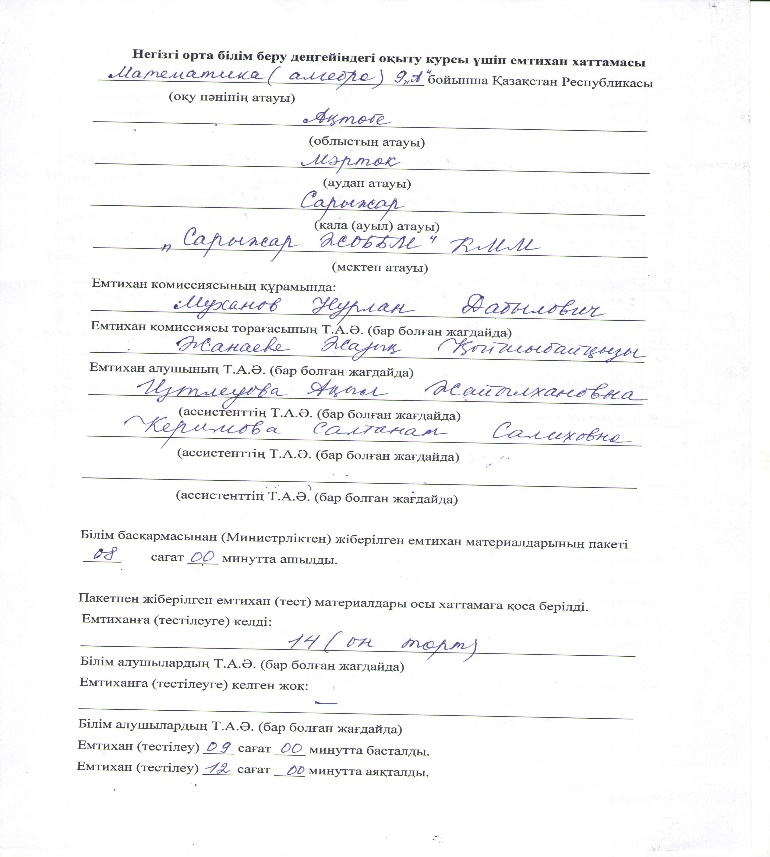 Негізгі орта білім беру деңгейіндегі оқыту курсы үшін емтихан хаттамасы
Математика (алгебра) 9 „А" бойынша Қазақстан Республикасы
(оқу пәнінің атауы)
Ақтөбе
(облыстың атауы)
Мәртөк
(аудан атауы)
Сарыжар
(қала (ауыл) атауы)
„Сарыжар ЖОББМ" КММ
(мектеп атауы)
Емтихан комиссиясының құрамында:
Муханов Нурлан Дабылович
Емтихан комиссиясы торағасының Т.А.Ә. (бар болған жағдайда)
Жанаева Жазық Қойшыбайқызы
Емтихан алушының Т.А.Ә. (бар болған жағдайда)
Изтлеуова Ақыл Жайылхановна
(ассистенттің Т.А.Ә. (бар болған жағдайда)
Керимова Салтанат Салиховна
(ассистенттің Т.А.Ә. (бар болған жағдайда)
(ассистенттің Т.А.Ә. (бар болған жағдайда)
Білім басқармасынан (Министрліктен) жіберілген емтихан материалдарының пакеті
08 сағат 00 минутта ашылды.
Пакетпен жіберілген емтихан (тест) материалдары осы хаттамаға қоса берілді.
Емтиханға (тестілеуге) келді:
14 (он төрт)
Білім алушылардың Т.А.Ә. (бар болған жағдайда)
Емтиханға (тестілеуге) келген жоқ:
—
Білім алушылардың Т.А.Ә. (бар болған жағдайда)
Емтихан (тестілеу) 09 сағат 00 минутта басталды.
Емтихан (тестілеу) 12 сағат 00 минутта аяқталды.